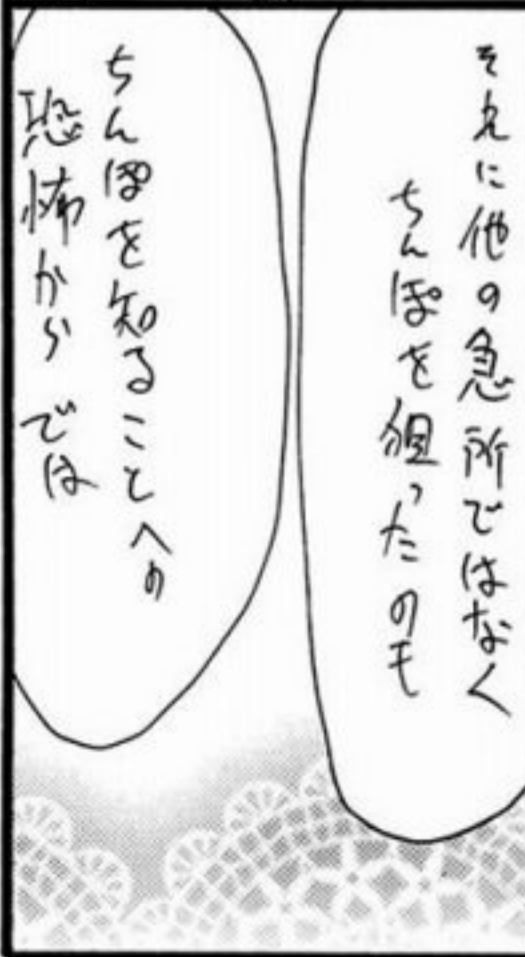 それに他の急所ではなく
ちんぽを狙ったのも
ちんぽを知ることへの
恐怖からでは